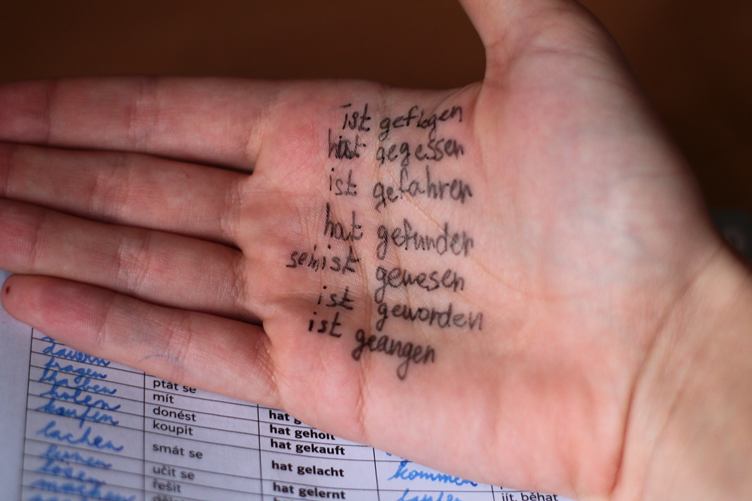 ist geflogen
hast gegessen
ist gefahren
hat gefunden
sein ist gewesen
ist geworden
ist geangen
dauern
fragen ptát se
haben mít
holen donést hat geholt
kaufen koupit hat gekauft
lachen smát se hat gelacht kommen
lernen učit se hat gelernt
řešit jít, běhat